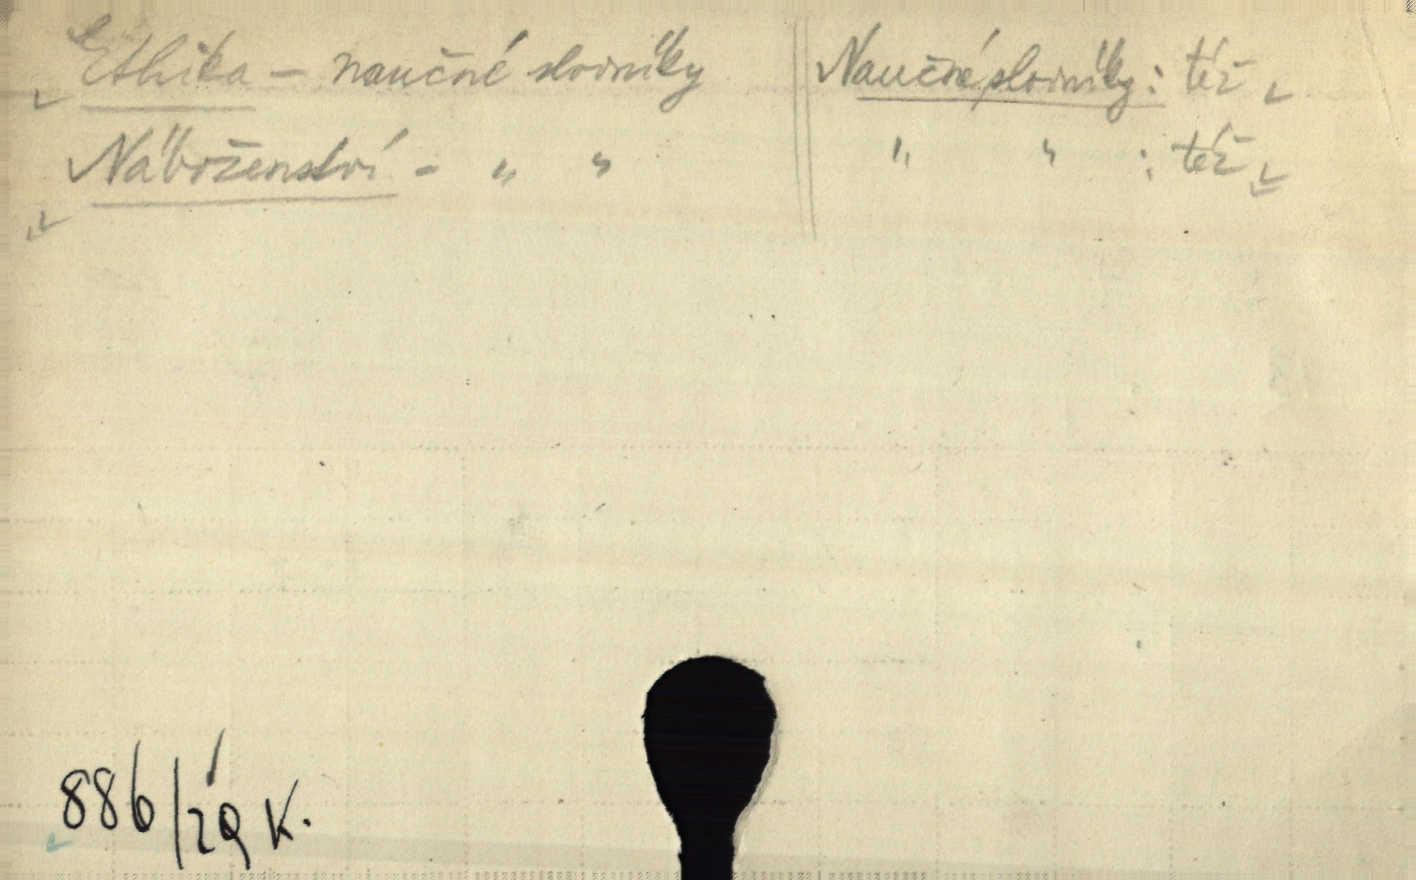 Ethika – naučné slovníky
Náboženství – " "
Naučné slovníky : též
" " : též
886/
K.